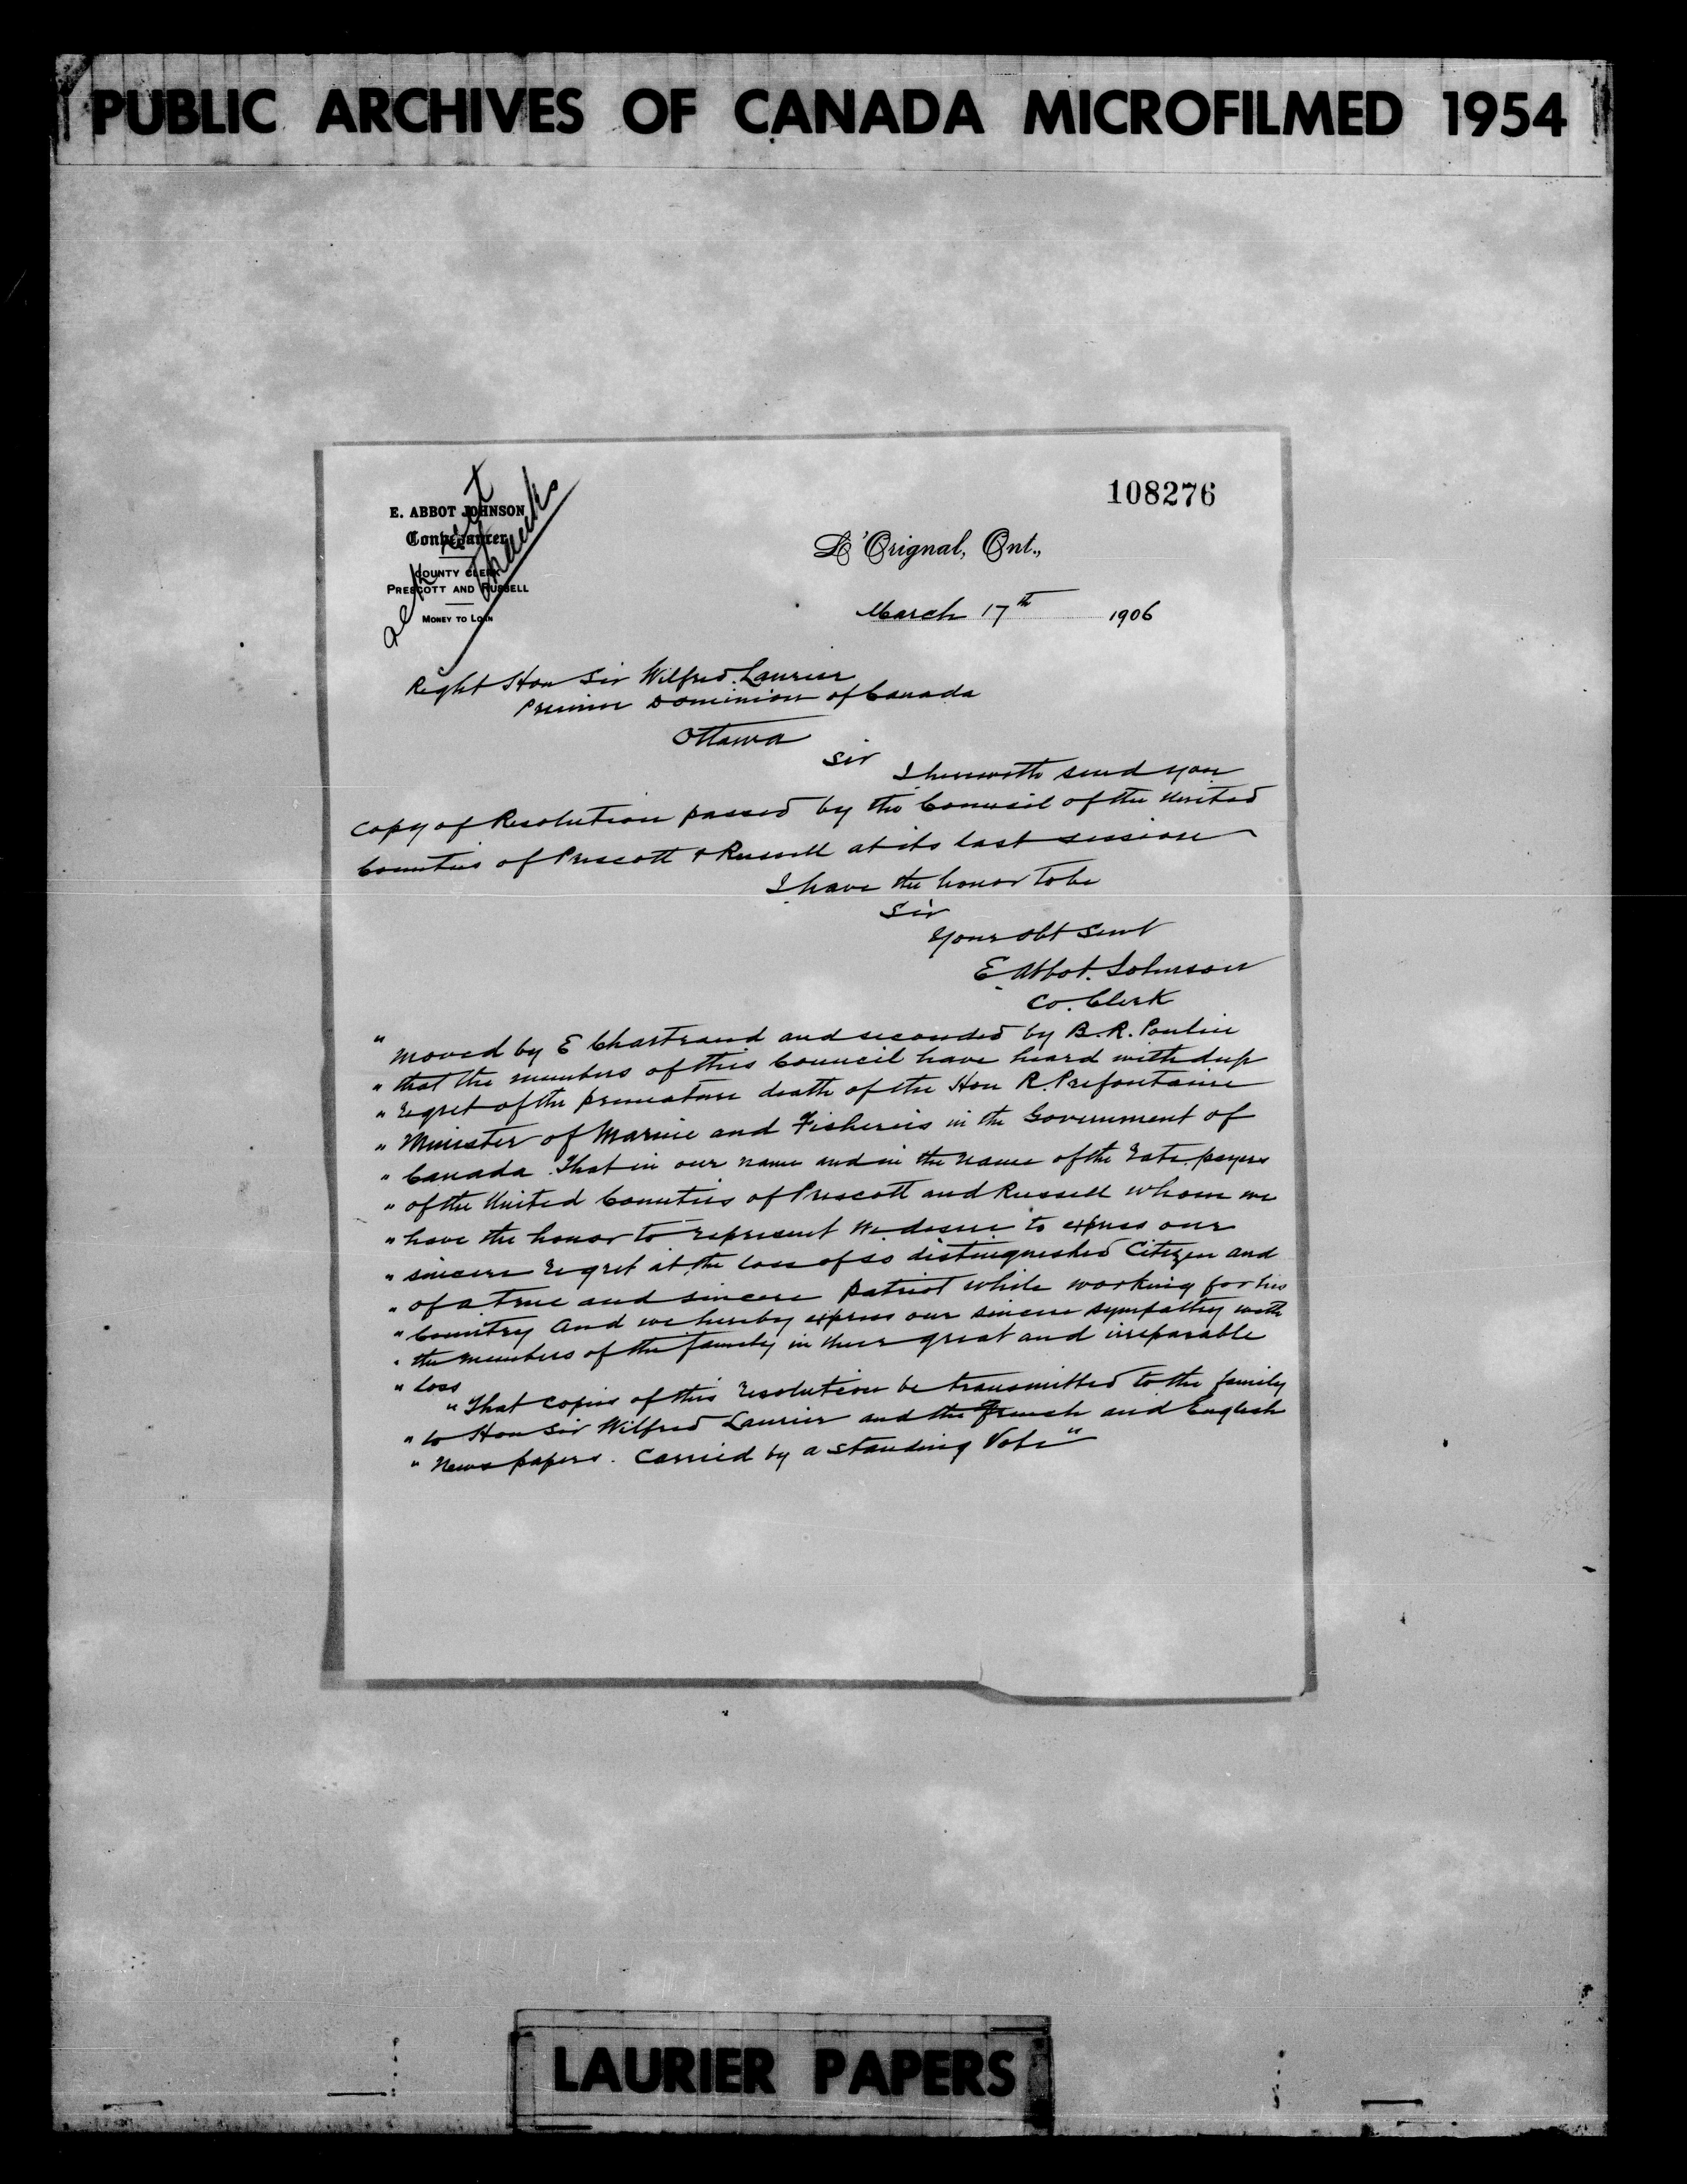 PUBLIC ARCHIVES OF CANADA MICROFILMED 1954
108276
E. ABBOT JOHNSON
Conveyancer
COUNTY CLERK
PRESCOTT AND RUSSELL
MONEY TO LOAN
thanks
L'Orignal, Ont.,
March 17th 1906
Right Hon Sir Wilfred Laurier
Premier Dominion of Canada
Ottawa
Sir
I herewith send you
copy of Resolution passed by the Council of the United
Counties of Prescott & Russell at its last session
I have the honor to be
Sir
Your obt Servt
E. Abbot. Johnson
Co. Clerk
" Moved by E Chartrand and seconded by B. R. Poulin
" that the members of this Council have heard with deep
" regret of the premature death of the Hon R. Prefontaine
" Minister of Marine and Fisheries in the Government of
" Canada. That in our name and in the name of the rate payers
" of the United Counties of Prescott and Russell whom we
" have the honor to represent we desire to express our
" sincere regret at the loss of so distinguished Citizen and
" of a true and sincere patriot while working for his
" Country And we hereby express our sincere sympathy with
" the members of the family in their great and irreparable
" loss
" That copies of this resolution be transmitted to the family
" to Hon Sir Wilfred Laurier and the French and English
" News papers. Carried by a standing Vote"
LAURIER PAPERS